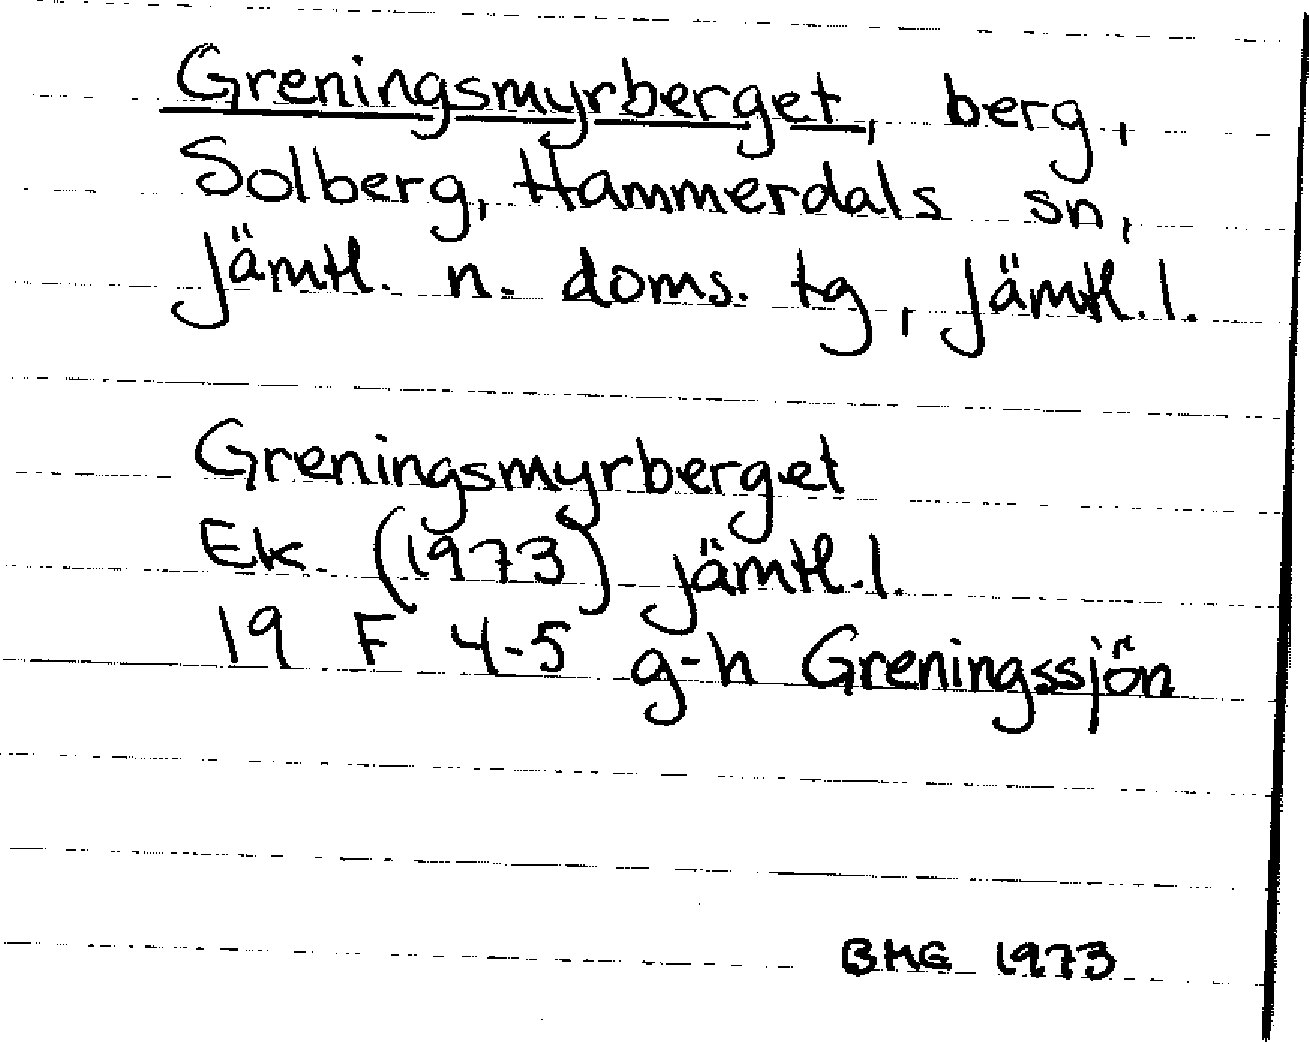 Greningsmyrberget, berg,
Solberg, Hammerdals sn,
Jämtl. n. doms. tg, Jämtl. l.
Greningsmyrberget
Ek (1973) Jämtl. l.
19 F 4-5 g-h Greningssjön
BMG 1973